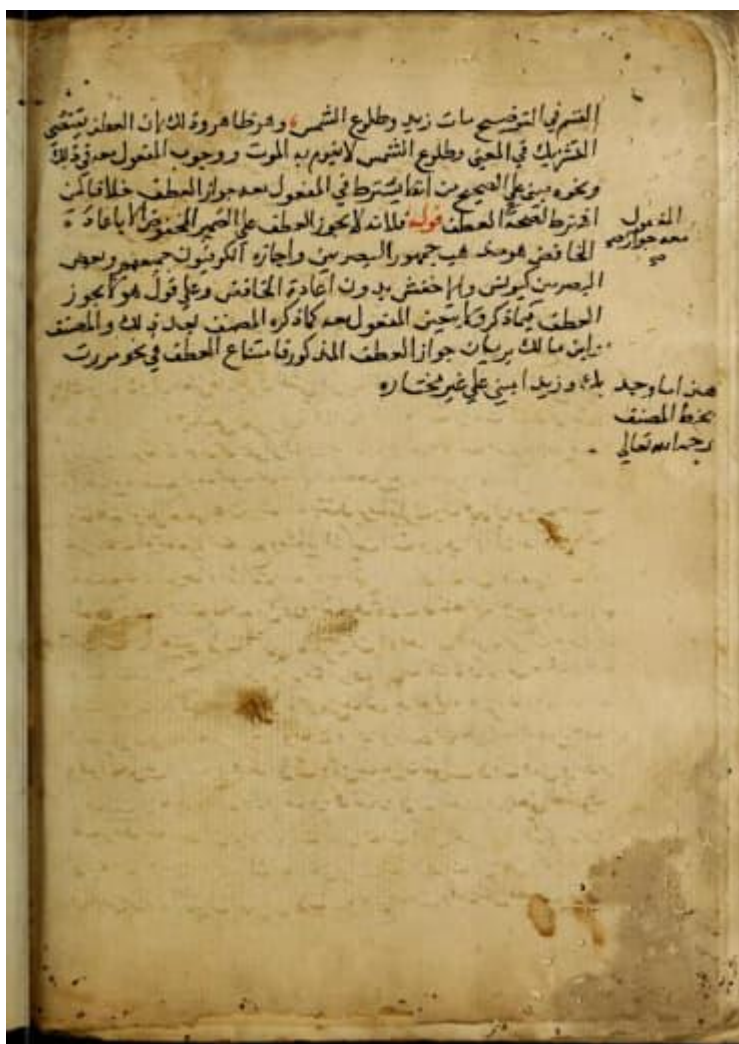 القسم في التوضيح مات زيد وطلوع الشمس وهو ظاهر وذلك لان العطف يقتضي
التشريك في المعنى وطلوع الشمس لا يقوم به الموت ووجوب المفعول معه في ذلك
ونحوه مبني على الصحيح من انه لا يشترط في المفعول معه جواز العطف خلافا لمن
اشترط لصحة العطف قوله فلانه لا يجوز العطف على الضمير المخفوض الا باعادة
الخافض هو مذهب جمهور البصريين واجازه الكوفيون جميعهم وبعض
البصريين كيونس والاخفش بدون اعادة الخافض وعلى قول هولا يجوز
العطف فيما ذكر ولا يتعين المفعول معه كما ذكره المصنف بعد ذلك والمصنف
وابن مالك يريان جواز العطف المذكور فامتناع العطف في نحو مررت
بك وزيدا مبني على غير مختاره
المفعول
معه جواز
هذا ما وجد
بخط المصنف
رحمه الله تعالى